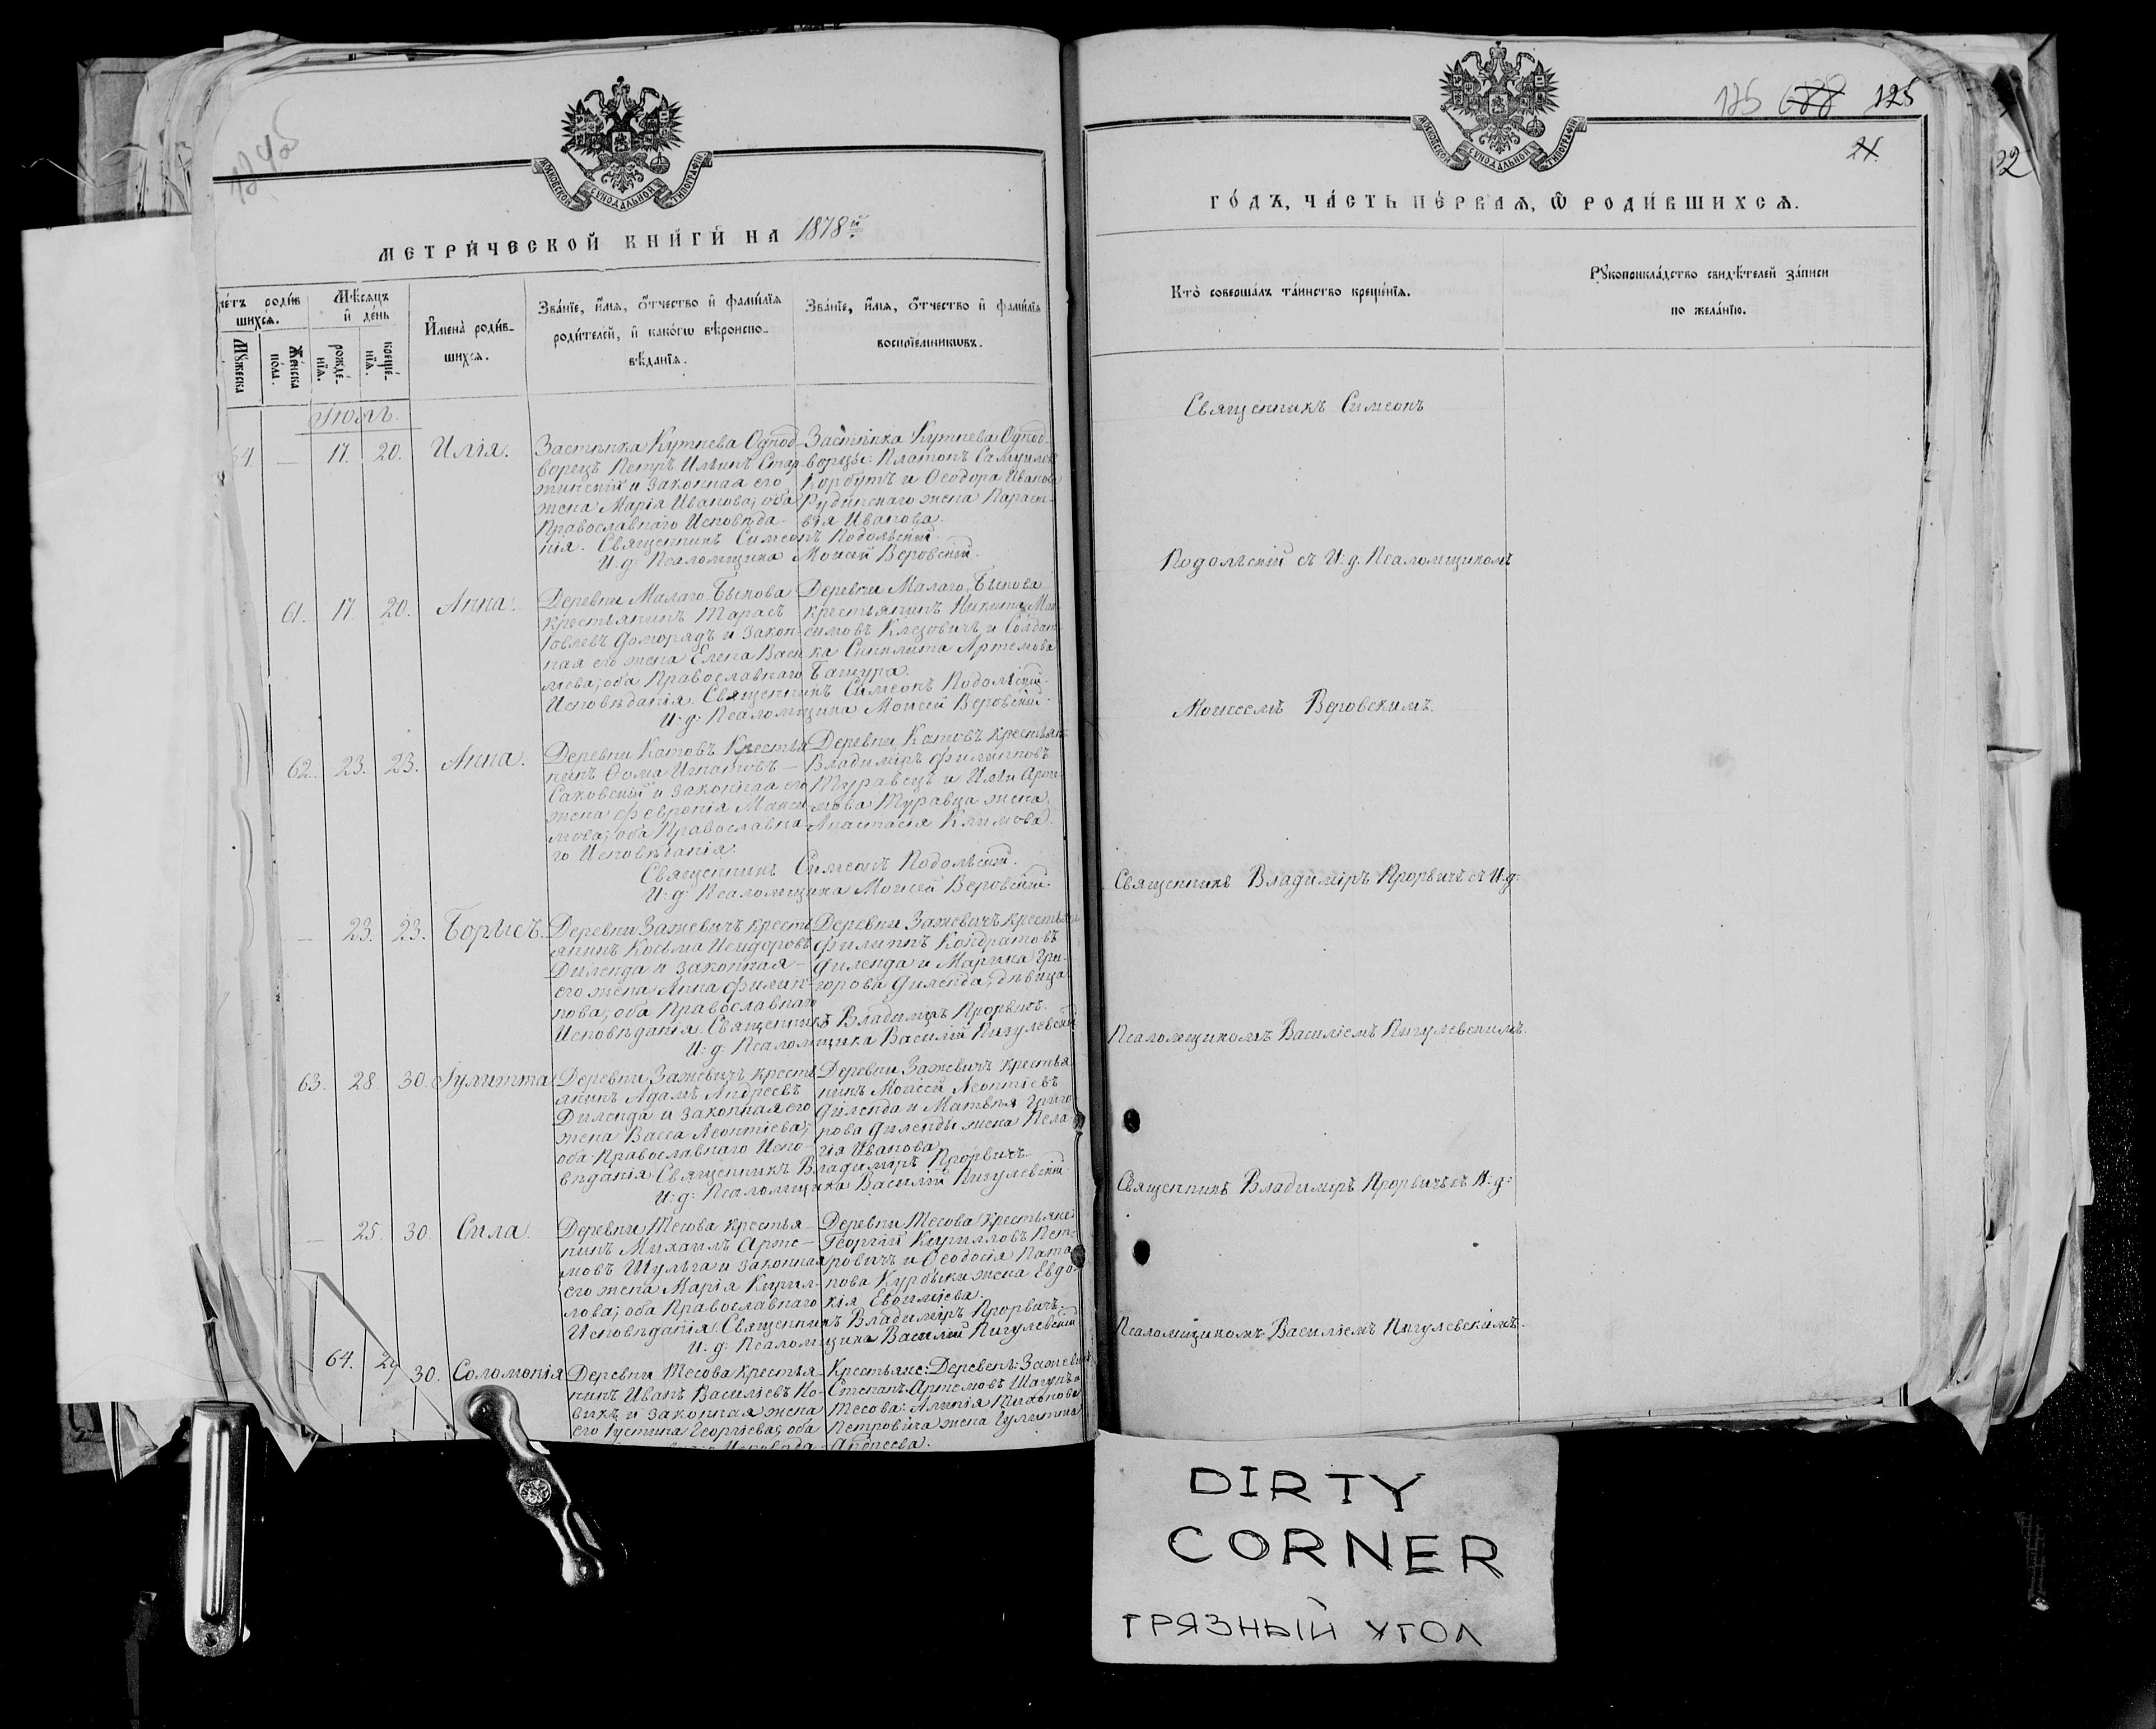 МОСКОВСКОЙ СУНОДАЛЬНОЙ ТИПОГРАФІИ
МЕТРИ́ЧЕСКОЙ КНИ́ГИ НА 1878й
родив
шихсѧ.
Мѣсѧцъ
и҆ де́нь
Мꙋжеска
Же́нска
по́ла.
рожде́-
нїѧ.
креще́-
нїѧ.
И҆мена̀ роди́в-
шихсѧ.
Зва́нїе, и҆́мѧ, ѻ҆́тчество и҆ фами́лїѧ
роди́телей, и҆ како́гѡ вѣроиспо-
вѣ́данїѧ.
Зва́нїе, и҆́мѧ, ѻ҆́тчество и҆ фами́лїѧ
воспрїе́мникѡвъ.
Іюль.
— 17. 20. Илія.
Застѣнка Кутнева Однод-
ворецъ Петръ Ильинъ Стар-
жинскій и законная его
жена Марія Иванова; оба
Православнаго Исповѣда-
нія. Священникъ Симеонъ Подольскій.
И: д: Псаломщика Моисей Веровскій.
Застѣнка Кутнева Однод-
ворцы: Платонъ Самуилов
Корбутъ и Ѳеодора Иванова
Рудинскаго жена Параске-
вія Иванова.
61. 17. 20. Анна.
Деревни Малаго Быкова
крестьянинъ Тарасъ
Іовлевъ Доморядъ и закон-
ная его жена Елена Васи
лева; оба Православнаго
Исповѣданія. Священникъ Симеонъ Подольскій.
И: д: Псаломщика Моисей Веровскій.
Деревни Малаго Быкова
крестьянинъ Никита Мак
симовъ Клезовичъ и Солдат
ка Артемова
Башура.
62. 23. 23. Анна.
Деревни Катовъ Крестья
нинъ Ѳома Игнатовъ —
Саковскій и законная его
жена Февронія Макси
мова; оба Православна
го Исповѣданія.
Священникъ Симеонъ Подольскій.
И: д: Псаломщика Моисей Веровскій.
Деревни Катовъ крестьяне
Владиміръ Филиповъ
Туравецъ и Илѣи Арте
мова Туравца жена
Анастасія Климова.
— 23. 23. Борисъ.
Деревни Зажевичъ кресть
янинъ Косьма Исидоровъ
Диленда и законная —
его жена Анна Филип-
пова; оба Православнаго
Исповѣданія. Священникъ Владиміръ Прорвичъ.
И: д: Псаломщика Василій Пигулевскій
Деревни Зажевичъ крестьяни
Филиппъ Кондратовъ
Диленда и Марина Гри-
горова Диленда, дѣвица.
63. 28. 30. Іулитта
Деревни Зажевичъ кресть
янинъ Адамъ Андреевъ
Диленда и законная его
жена Васса Леонтіева;
оба Православнаго Испо-
вѣданія. Священникъ Владиміръ Прорвичъ.
И: д: Псаломщика Василій Пигулевскій
Деревни Зажевичъ крестья
нинъ Моисей Леонтіевъ
Диленда и Матвѣя Григо
рова Диленды жена Пела
гія Иванова.
— 25. 30. Сила.
Деревни Тесова крестья-
нинъ Михаилъ Арте-
мовъ Шульга и законная
его жена Марія Кирил-
лова; оба Православнаго
Исповѣданія. Священникъ Владиміръ Прорвичъ.
И: д: Псаломщика Василій Пигулевскій
Деревни Тесова крестьяне:
Георгій Кирилловъ Пет-
ровичъ и Ѳеодосія Пата
пова Курбыки жена Евдо-
кія Евфиміева.
64. 29 30. Соломонія
Деревни Тесова крестья-
нинъ Иванъ Васильевъ Но-
викъ и законная жена
его Іустина Георгіева; оба
Крестьяне: Деревень: Зажевичъ
Степанъ Артемовъ Шагунъ
Тесова: Тихонова
Петровича жена Іулитта
Андреева.
125 688 125
21.
22
МОСКОВСКОЙ СУНОДАЛЬНОЙ ТИПОГРАФІИ
ГО́ДЪ, ЧА́СТЬ ПЕ́РВАѦ, Ѡ҆ РОДИ́ВШИХСѦ.
Кто̀ соверша́лъ та́инство креще́нїѧ.
Рꙋкоприкла́дство свидѣ́телей за́писи
по жела́нїю.
Священникъ Симеонъ
Подольскій съ И: д: Псаломщикомъ
Моисеемъ Веровскимъ.
Священникъ Владиміръ Прорвичъ съ И: д:
Псаломщикомъ Василіемъ Пигулевскимъ.
Священникъ Владиміръ Прорвичъ съ И: д:
Псаломщикомъ Василіемъ Пигулевскимъ.
DIRTY
CORNER
ГРЯЗНЫЙ УГОЛ